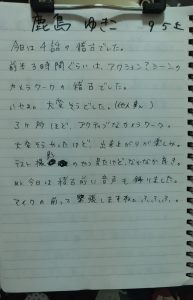 鹿島 ゆきこ 95点
今日は4話の稽古でした。
前半3時間ぐらいは、アクションシーンの
カメラワークの稽古でした。
いやぁ大変そうでした。(他人事)
3ヶ所ほど、アクティブなカメラワーク。
大変そうやったけど、出来上がりが楽しみ。
テスト撮影のやつ見たけど、なかなか良き。
今日は稽古前に音声も録りました。
マイクの前って緊張しますねぇ、ふ、ふ、ふ。